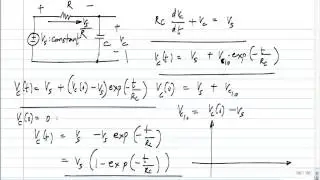 + R +
Vs
R
Vs: constant
C
Vc
RC dVc/dt + Vc = Vs
Vc(t) = Vs + Vc10 · exp(-t/RC)
Vc(t) = Vs + (Vc(0) - Vs) exp(-t/RC)
Vc(0) = Vs + Vc10
Vc(0) = 0 :
Vc10 = Vc(0) - Vs
Vc(t) = Vs - Vs exp(-t/RC)
= Vs (1 - exp(-t/RC))